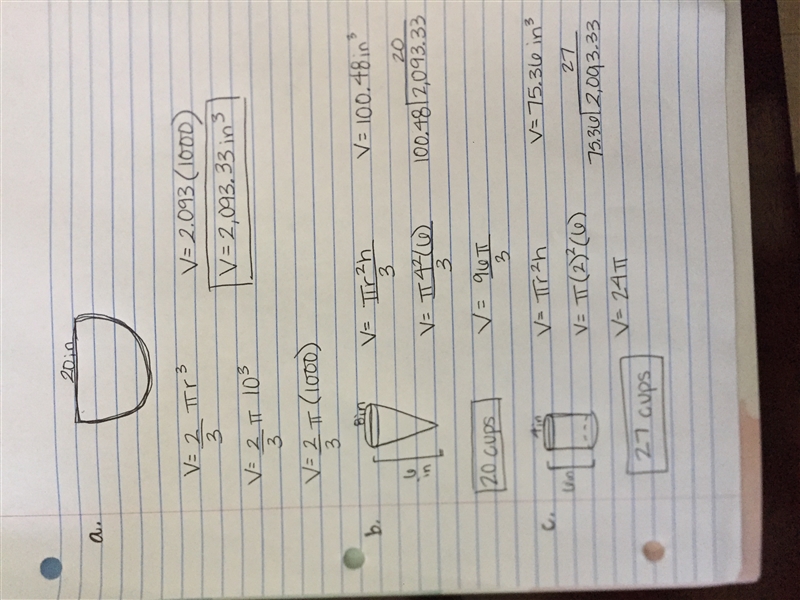 a.
20in
V = 2/3 πr³
V = 2/3 π 10³
V = 2/3 π (1000)
V = 2.093(1000)
V = 2,093.33 in³
b.
8in
6 in
V = πr²h/3
V = π4²(6)/3
V = 96π/3
V = 100.48 in³
20
100.48 2,093.33
20 cups
c.
4in
6in
V = πr²h
V = π(2)²(6)
V = 24π
V = 75.36 in³
27
75.36 2,093.33
27 cups